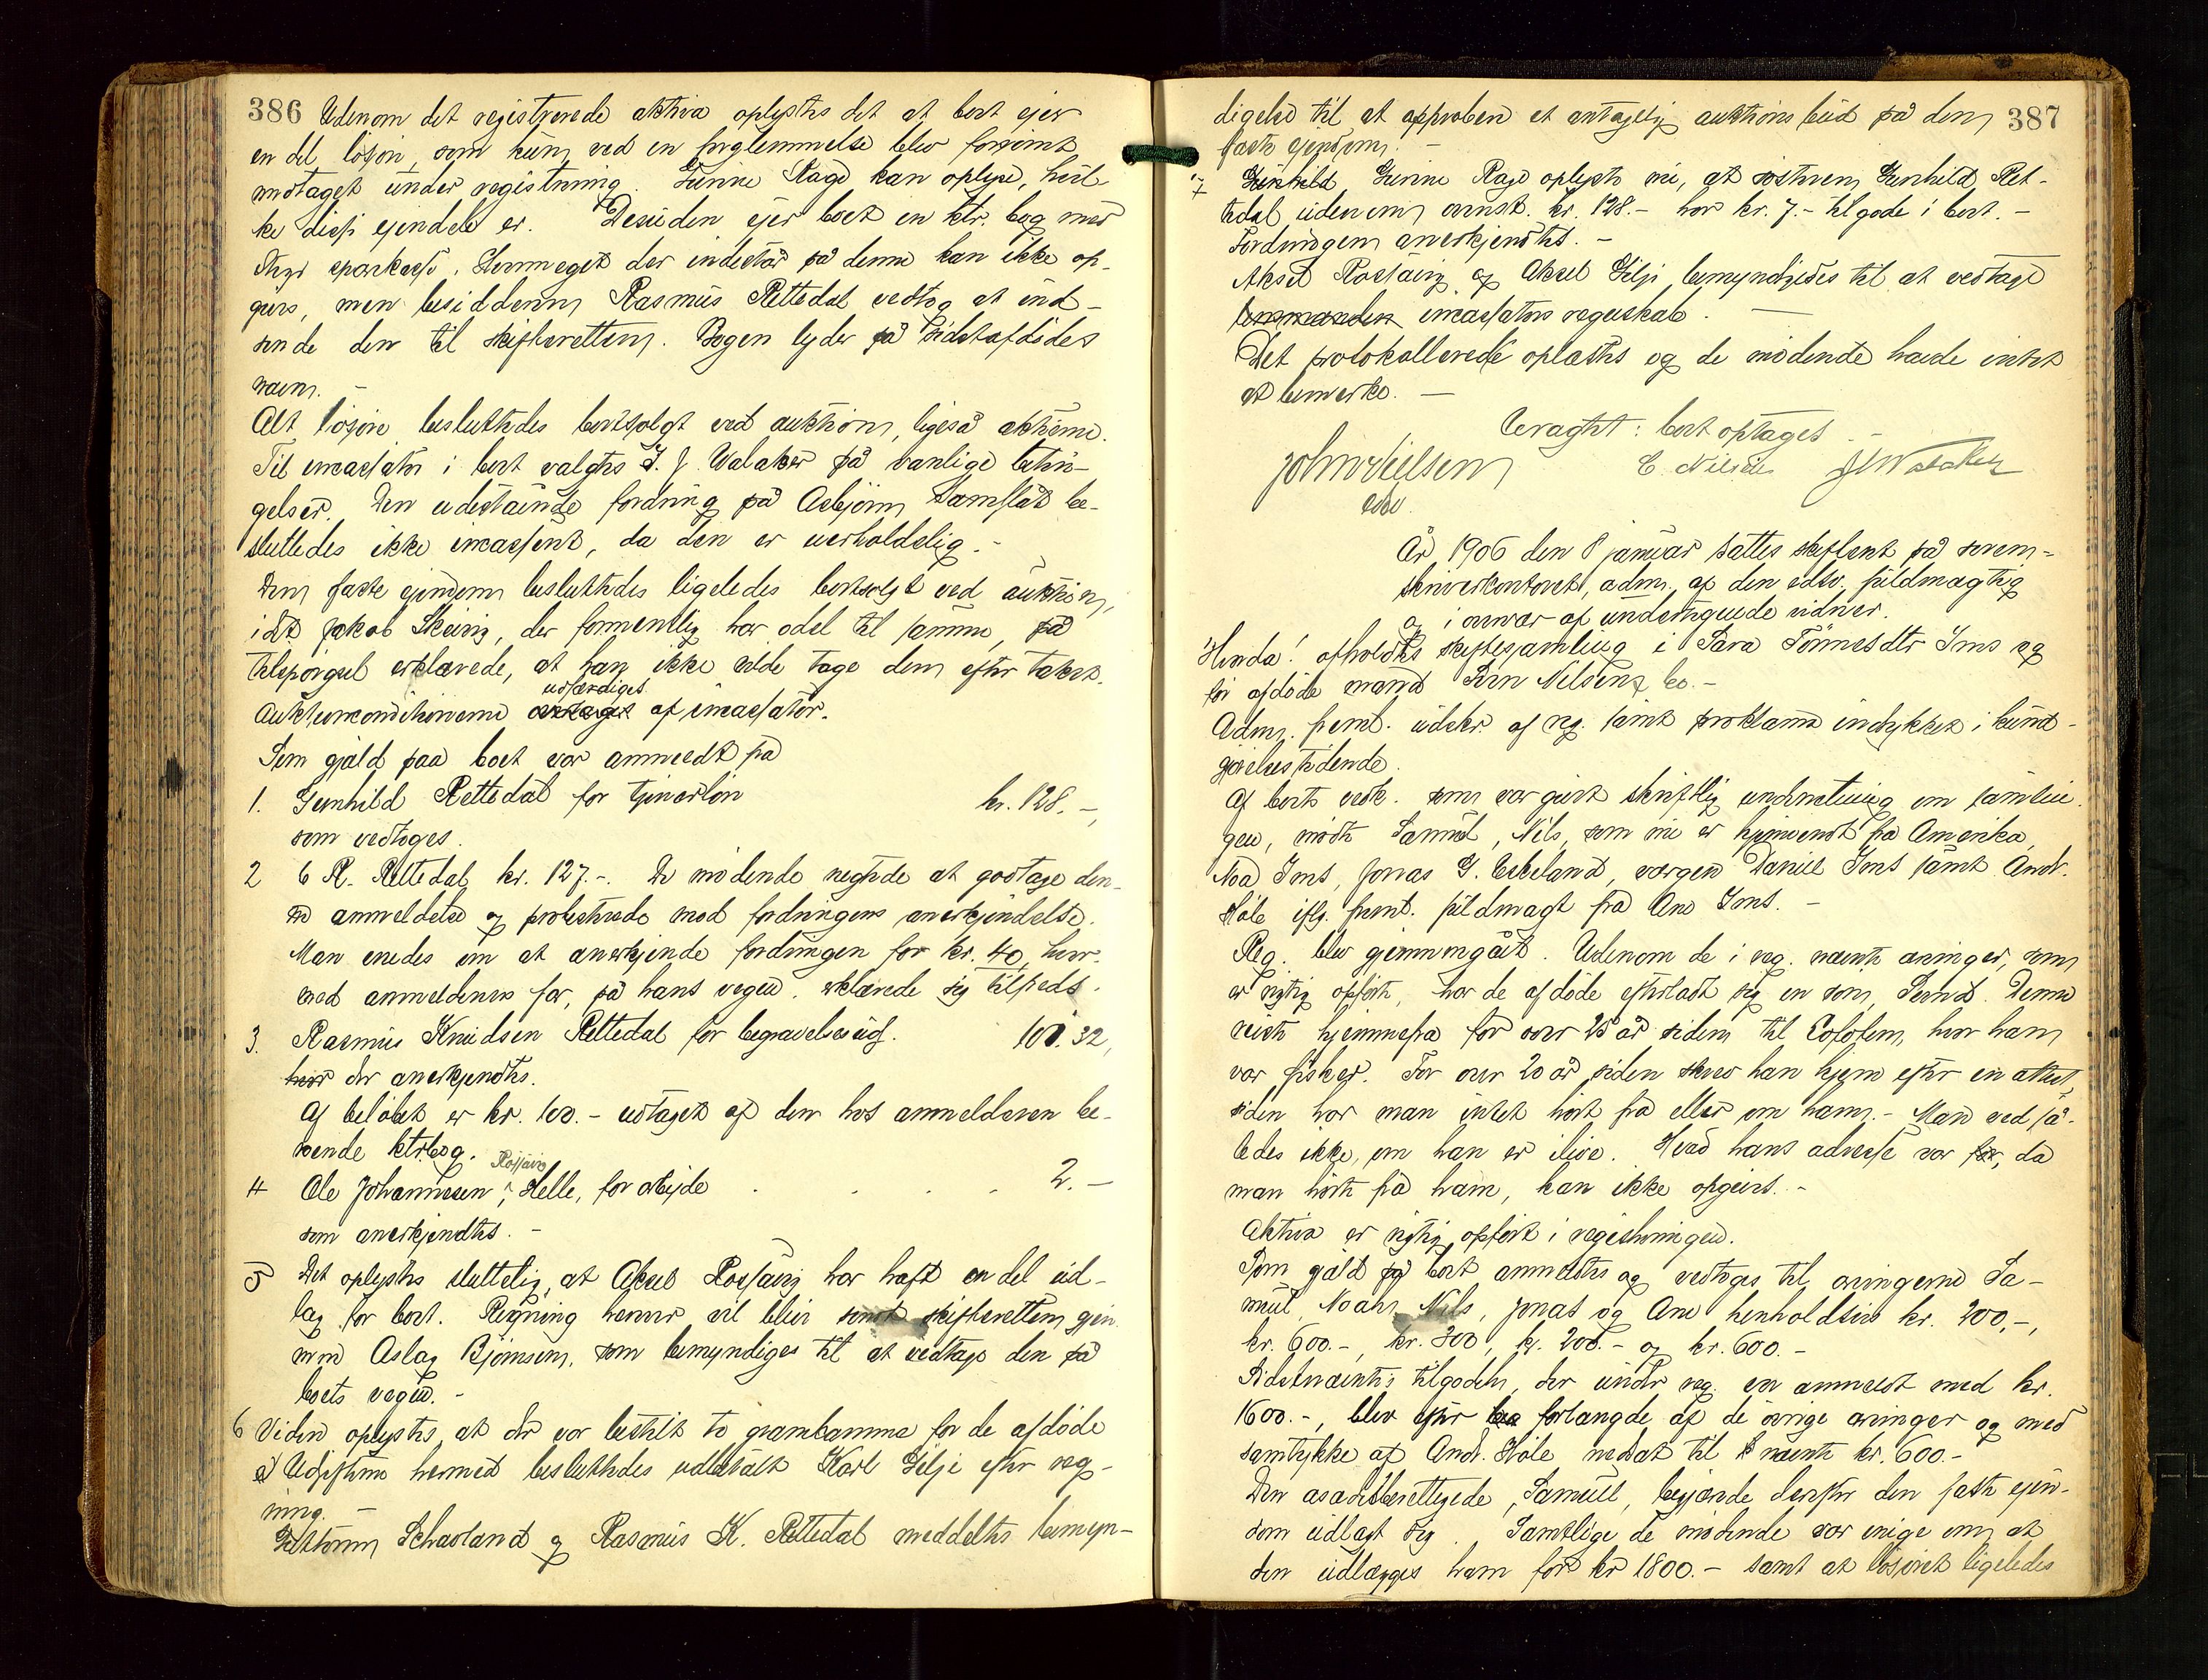 386 Udenom det registrerede aktiva oplystes det at boet ejer
en del løsøre, som kun ved en forglemmelse blev forsømt
mottaget under registrering. Gunne Rage kan oplyse, hvil-
ke disse ejendele er. Desuden ejer boet en ktr. bog med
sparkasse. Hvormeget der indestår på denne kan ikke op-
gives, men besidderen Rasmus Rettedal vedtog at ind-
sende den til skifteretten. Bogen lyder på sidstafdødes
navn. -
Alt løsøre besluttedes bortsolgt ved auktion, ligeså aktierne.
Til incassator i boet valgtes J. J. Walaker på vanlige betin-
gelser. Den udestående fordring på Asbjørn be-
sluttedes ikke incasseret, da den er uerholdelig. -
Den faste ejendom besluttedes ligeledes bortsolgt ved auktion,
idet Jakob Skeiing, der formentlig har odel til samme, på
tilspørgsel erklærede, at han ikke vilde tage den efter takst.
udfærdiges
Auktionsconditionerne af incassator.
Som gjæld paa boet var anmeldt på
1. Gunhild Rettedal for tjenerløn kr. 128.-,
som vedtoges.
2 R. Rettedal kr. 127.-. De mødende negtede at godtage den-
ne anmeldelse og protesterede mod fordringens anerkjendelse.
Man enedes om at anerkjende fordringen for kr. 40, hvor-
med anmelderens far, på hans vegne, erklærede sig tilfreds.
3. Rasmus Knudsen Rettedal for begravelsesudg. 101.32,
der anerkjendtes.
Af beløbet er kr. 100.- udtaget af den hos anmelderen be-
roende ktrbog.
Rossåvig
4 Ole Johannesen, Helle, for arbejde . . . . 2.-
som anerkjendtes. -
5 Det oplystes sluttelig, at Aksel Rossåvig har haft en del ud-
læg for boet. Regning herover vil blive sendt skifteretten gjen-
nem Aslag Bjørnsen, som bemyndiges til at vedtage den på
boets vegne. -
6 Viden oplystes, at der var bestilt to gravkamme for de afdøde
Udgifterne hermed besluttedes udbetalt Karl Gilje efter reg-
ning. -
Guttorm Schavland og Rasmus K. Rettedal meddeltes bemyn-
digelse til at approbere et antageligt auktionsbud på den 387
faste ejendom. -
7 Gunne Rage oplyste nu, at søsteren Gunhild Ret-
tedal udenom kr. 128.- har kr. 7.- tilgode i boet. -
Fordringen anerkjendtes. -
Aksel Rossåvig og Aksel Gilje bemyndigedes til at vedtage
incassators regnskab. -
Det protokollerede oplæstes og de mødende havde intet
at bemerke. -
Eragtet: boet optages. -
John Nielsen E. Nilsen JJWalaker
edsv.
År 1906 den 8 januar sattes skifteret på soren-
skriverkontoret, adm. af den edsv. fuldmægtig
og i overvær af undertegnede vidner.
Hvorda! afholdtes skiftesamling i Sara Tønnesdtr Ims og
før afdøde mand Sven Nilsens bo. -
Adm. freml. udskr. af reg. samt proklama indrykket i kund-
gjørelsestidende.
Af boets vedk. som var givet skriftlig underretning om samlin-
gen, mødte Samuel, Nils, som nu er hjemvendt fra Amerika,
Noa Ims, Jonas G. Eskeland, værgen Daniel Ims samt Andr.
Høle iflg. freml. fuldmagt fra Ane Ims. -
Reg. blev gjennemgået. Udenom de i reg. nævnte arvinger, som
er rigtig opført, har de afdøde efterladt sig en søn, Svend. Denne
reiste hjemmefra for over 25 år siden til Lofoten, hvor han
var fisker. For over 20 år siden skrev han hjem efter en attest,
siden har man intet hørt fra eller om ham. - Man ved så-
ledes ikke, om han er ilive. Hvad hans adresse var da
man hørte fra ham, kan ikke opgives. -
Aktiva er rigtig opført i registreringen.
Som gjæld på boet anmeldtes og vedtoges til arvingerne Sa-
muel, Noah, Nils, Jonas og Ane henholdsvis kr. 200.-,
kr. 600.-, kr. 300, kr. 200.- og kr. 600.-
Sidstnævntes tilgodeh., der under reg. er anmeldt med kr.
1600.-, blev efter forlangde af de øvrige arvinger og med
samtykke af Andr. Høle nedsat til nævnte kr. 600.-
Den åsædesberettigede, Samuel, begjærede derefter den faste ejen-
dom udlagt sig. Samtlige de mødende var enige om at
den udlægges ham for kr 1800.- samt at løsøret ligeledes